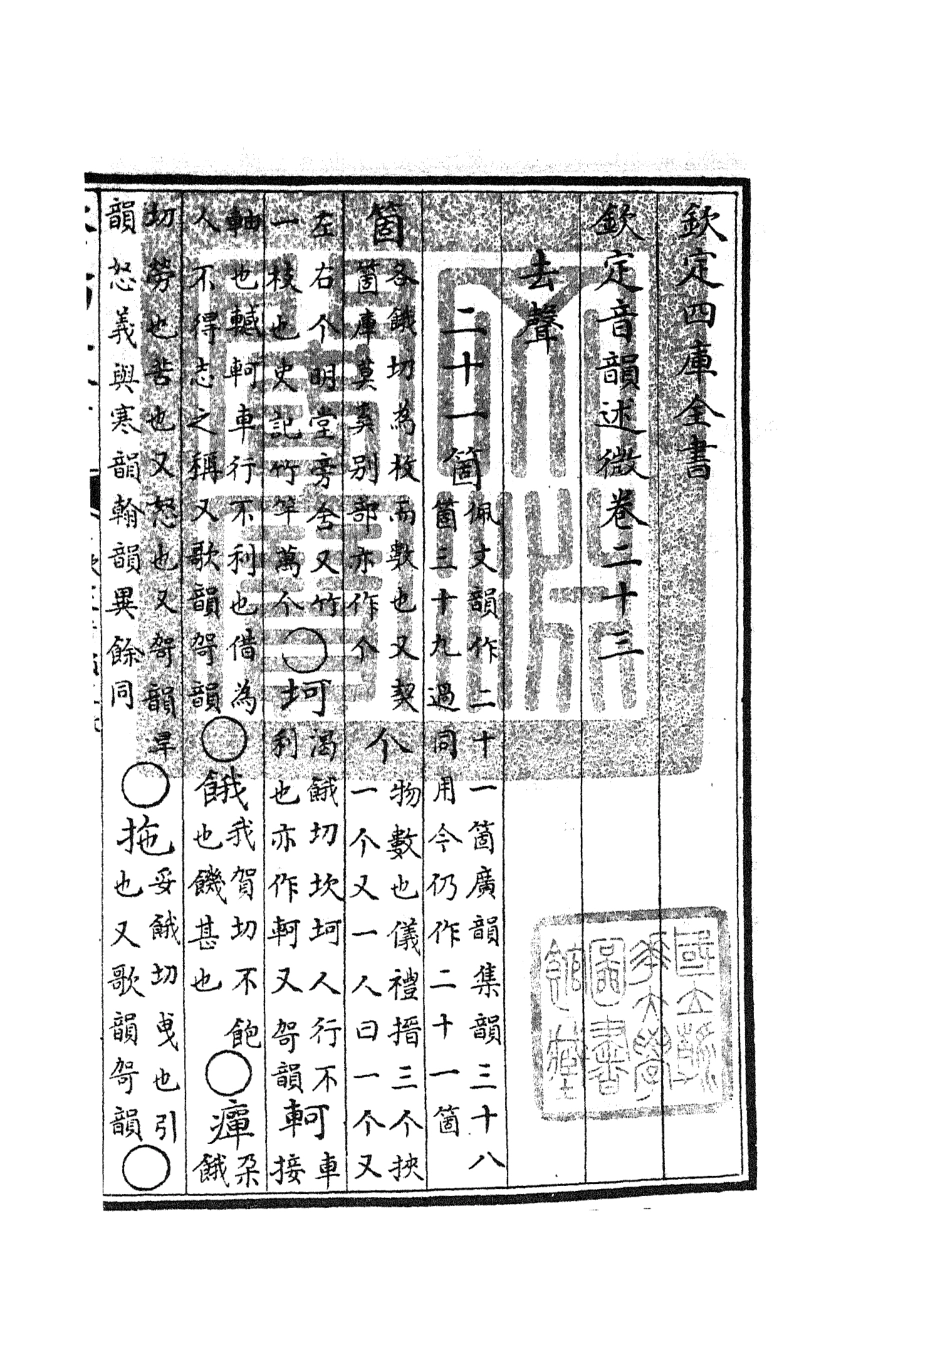 欽定四庫全書
欽定音韻述微卷二十三
去聲
二十一箇佩文韻作二十一箇廣韻集韻三十八箇三十九過同用今仍作二十一箇
箇各餓切為枚而數也又契箇庫莫奚别部亦作个 个物數也儀禮搢三个挾一个又一人曰一个又
左右个明堂旁舍又竹一枝也史記竹竿萬个○坷渴餓切坎坷人行不利也亦作軻又哿韻 軻車接
軸也轗軻車行不利也借為人不得志之稱又歌韻哿韻○餓我賀切不飽也饑甚也○癉朶餓
切勞也苦也又怒也又哿韻旱韻怒義與寒韻翰韻異餘同○拖妥餓切曳也引也又歌韻哿韻○